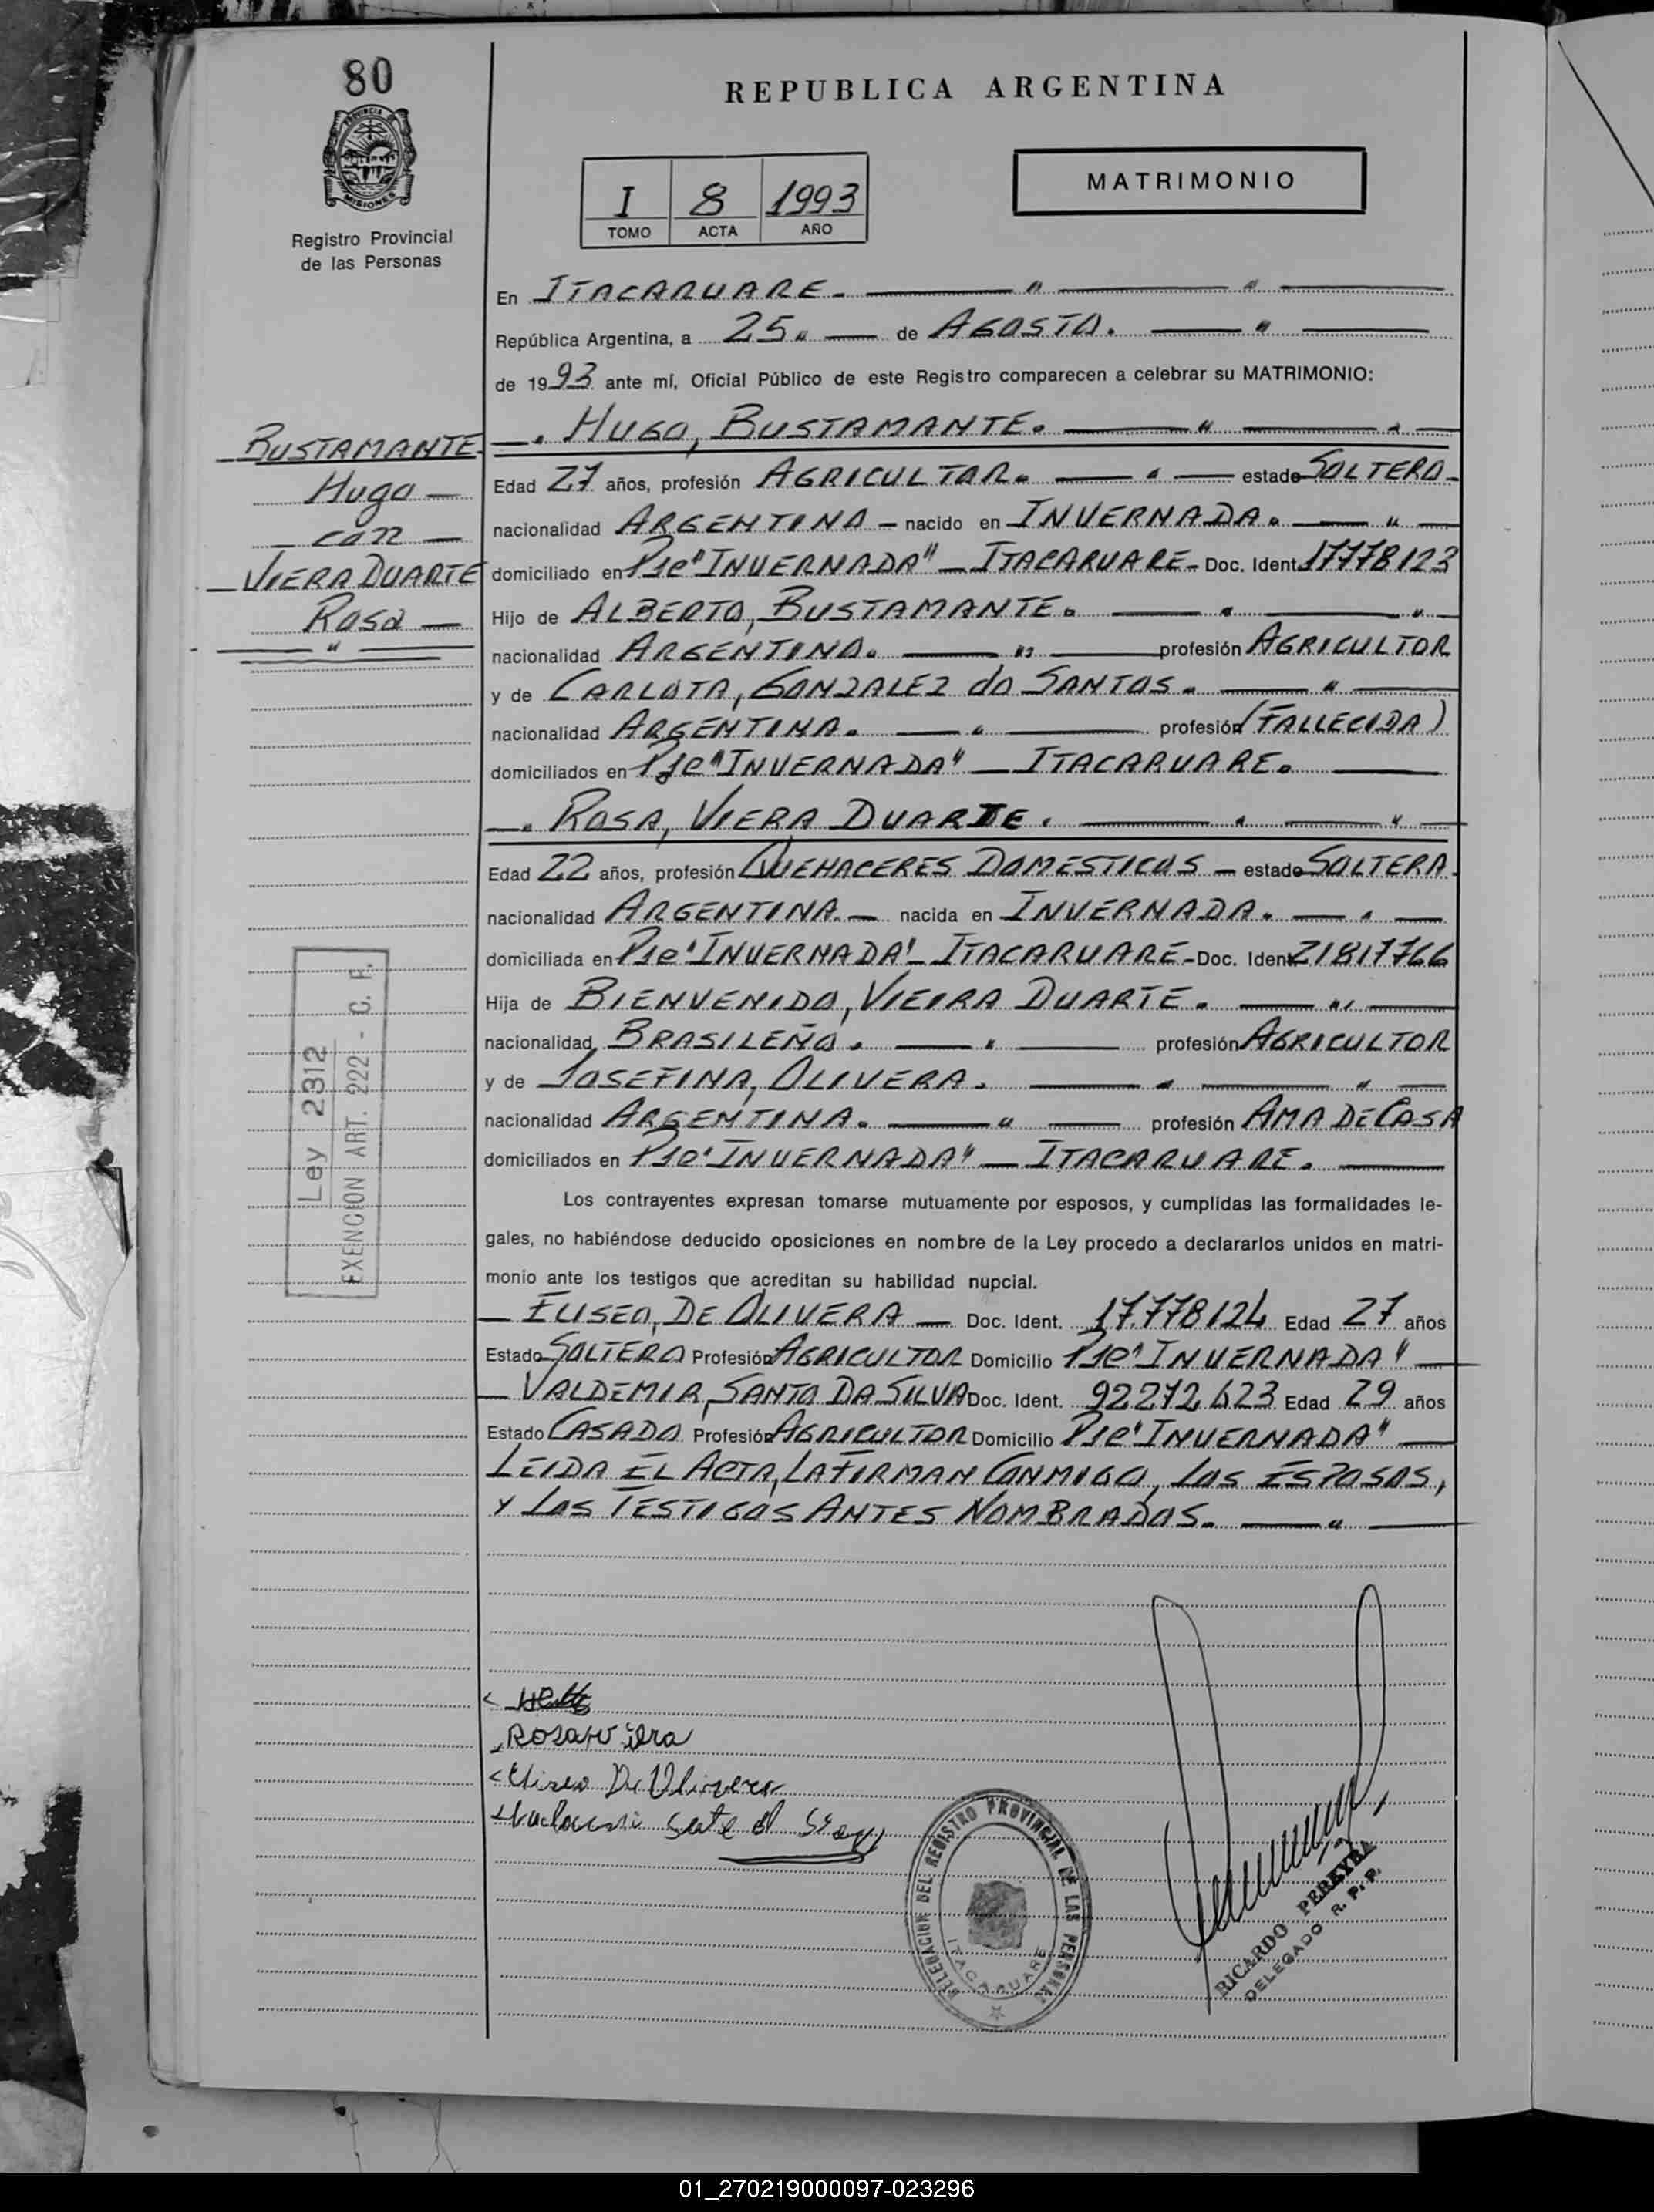 80
PROVINCIA DE
MISIONES
Registro Provincial
de las Personas
REPUBLICA ARGENTINA
I 8 1993
TOMO ACTA AÑO
MATRIMONIO
En ITACARUARE.
República Argentina, a 25 de AGOSTO.
de 1993 ante mí, Oficial Público de este Registro comparecen a celebrar su MATRIMONIO:
BUSTAMANTE
Hugo
con
VIERA DUARTE
Rosa
HUGO, BUSTAMANTE.
Edad 27 años, profesión AGRICULTOR. estado SOLTERO
nacionalidad ARGENTINO nacido en INVERNADA.
domiciliado en Pje "INVERNADA" - ITACARUARE - Doc. Ident. 17778123
Hijo de ALBERTO, BUSTAMANTE.
nacionalidad ARGENTINO. profesión AGRICULTOR
y de CARLOTA, GONZALEZ do SANTOS.
nacionalidad ARGENTINA. profesión (FALLECIDA)
domiciliados en Pje "INVERNADA" - ITACARUARE.
ROSA, VIERA DUARTE.
Edad 22 años, profesión QUEHACERES DOMESTICOS - estado SOLTERA.
nacionalidad ARGENTINA. nacida en INVERNADA.
domiciliada en Pje "INVERNADA" - ITACARUARE - Doc. Ident. 21817766
Hija de BIENVENIDO, VIEIRA DUARTE.
nacionalidad BRASILEÑO. profesión AGRICULTOR
y de JOSEFINA, OLIVERA.
nacionalidad ARGENTINA. profesión AMA DE CASA
domiciliados en Pje "INVERNADA" - ITACARUARE.
Ley 2312
EXENCION ART. 222 - C. F.
Los contrayentes expresan tomarse mutuamente por esposos, y cumplidas las formalidades le-
gales, no habiéndose deducido oposiciones en nombre de la Ley procedo a declararlos unidos en matri-
monio ante los testigos que acreditan su habilidad nupcial.
ELISEO, DE OLIVERA - Doc. Ident. 17.778124 Edad 27 años
Estado SOLTERO Profesión AGRICULTOR Domicilio Pje "INVERNADA"
VALDEMIR, SANTO DA SILVA Doc. Ident. 92.272.623 Edad 29 años
Estado CASADO Profesión AGRICULTOR Domicilio Pje "INVERNADA"
LEIDA EL ACTA, LA FIRMAN CONMIGO, LOS ESPOSOS,
Y LOS TESTIGOS ANTES NOMBRADOS.
Rosa Viera
Eliseo De Olivera
DELEGACION DEL REGISTRO PROVINCIAL DE LAS PERSONAS
ITACARUARE
RICARDO PEREYRA
DELEGADO R. P. P.
01_270219000097-023296